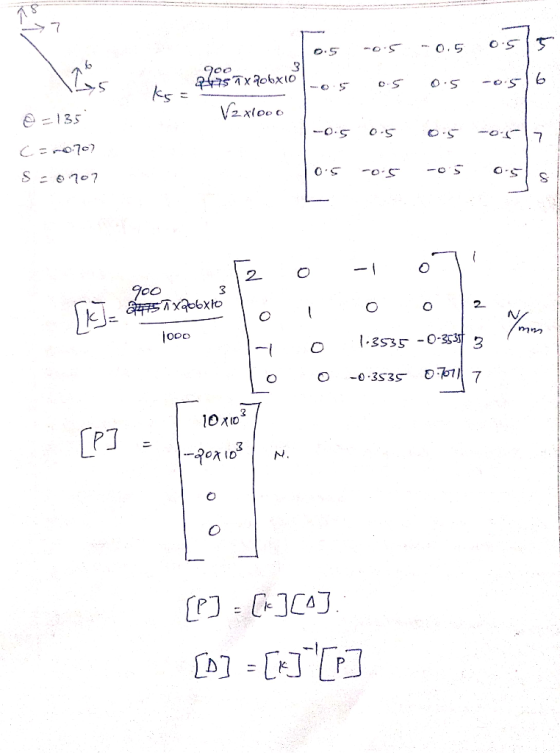 8
7
6
5
θ = 135°
C = -0.707
S = 0.707
K5 = 900 π x 206x10^3 / √2 x1000
0.5 -0.5 -0.5 0.5 5
-0.5 0.5 0.5 -0.5 6
-0.5 0.5 0.5 -0.5 7
0.5 -0.5 -0.5 0.5 8
[K] = 900 π x 206x10^3 / 1000
2 0 -1 0 1
0 1 0 0 2
-1 0 1.3535 -0.3535 3
0 0 -0.3535 0.7071 7
N/mm
[P] =
10 x10^3
-20x10^3 N.
0
0
[P] = [K][Δ].
[Δ] = [K]^-1 [P]